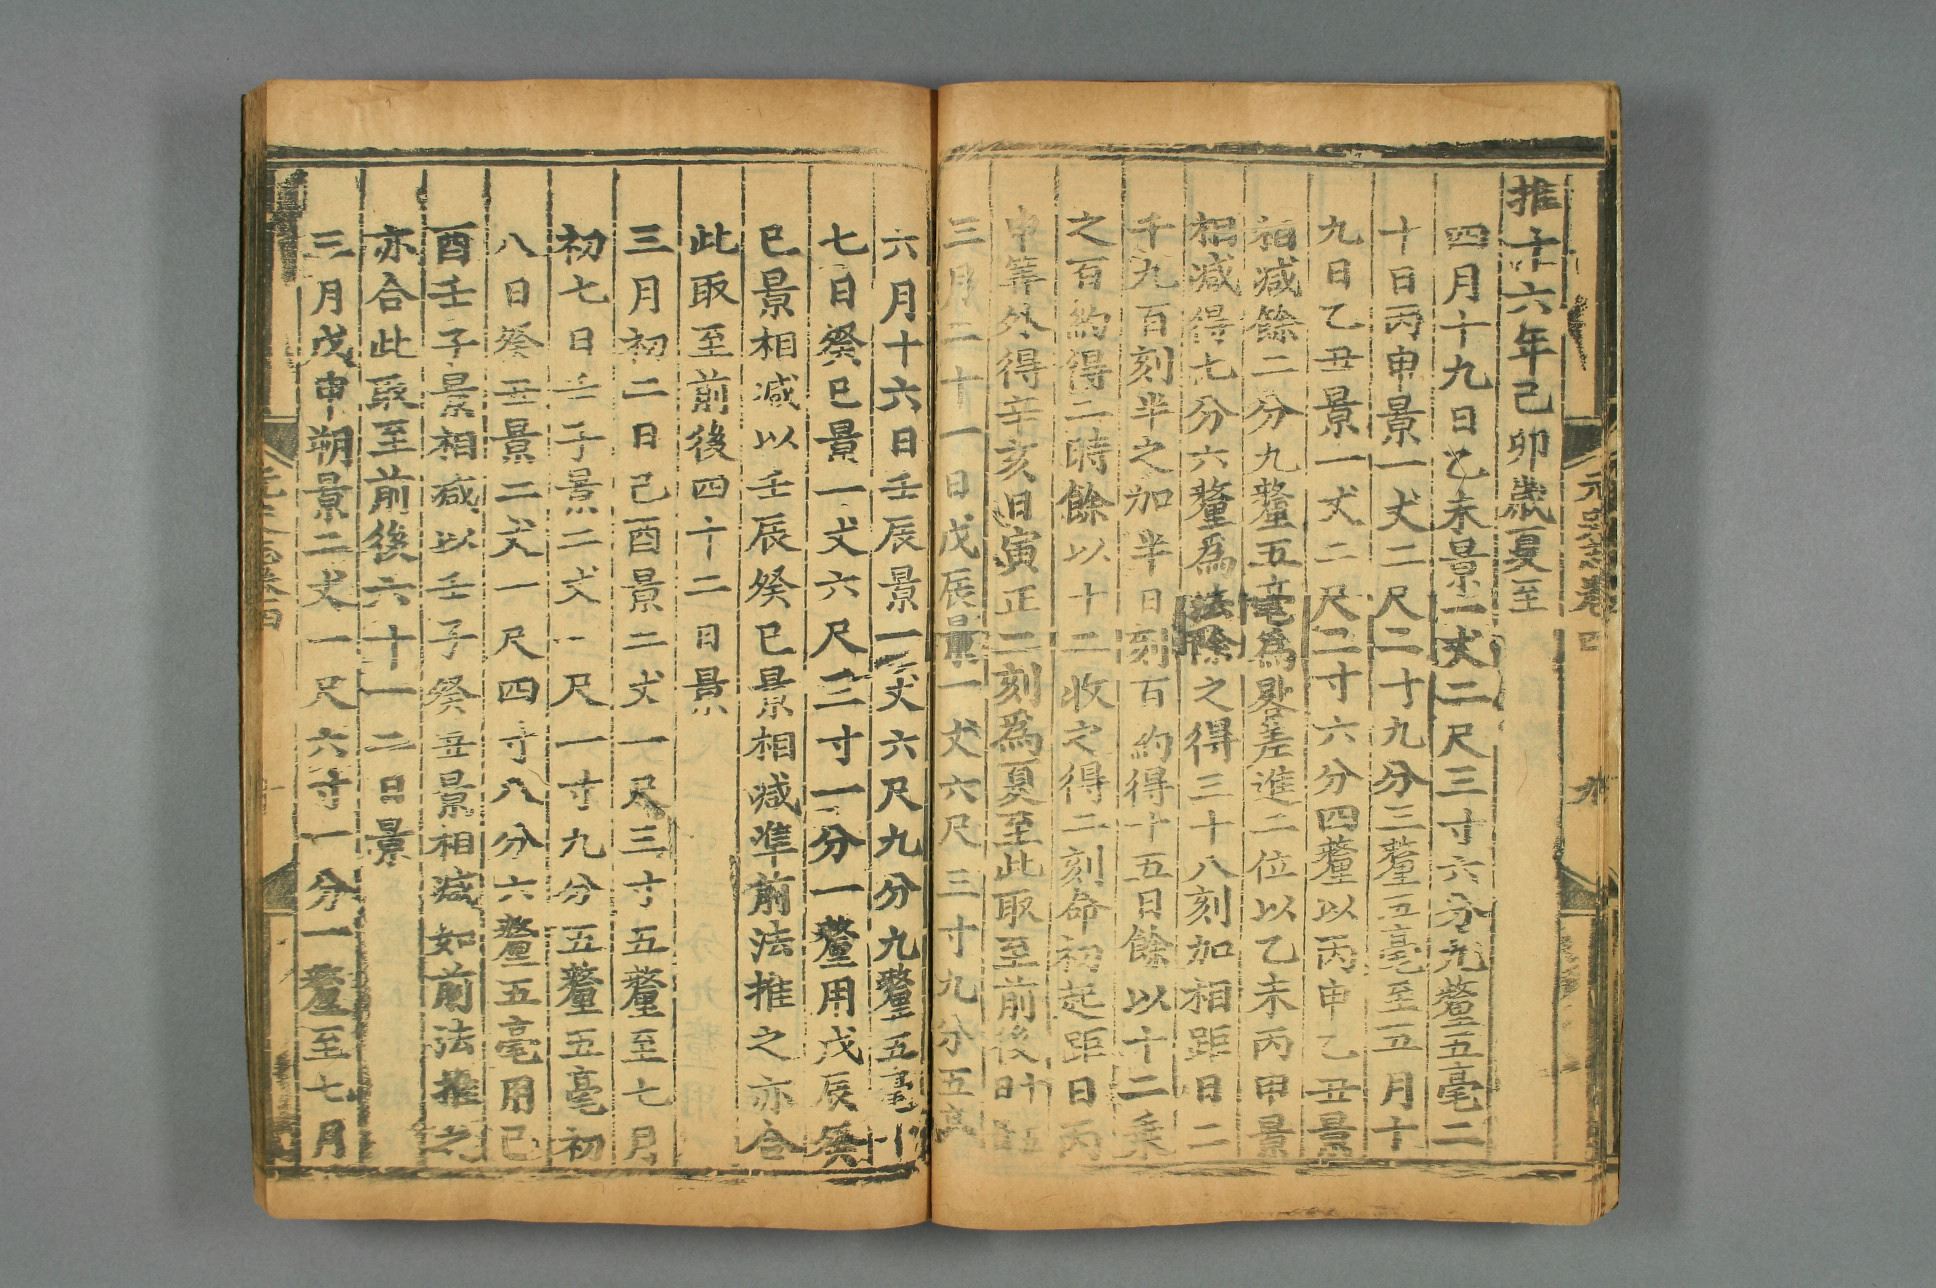 推十六年己卯歲夏至
四月十九日乙未景一丈二尺三寸六分九釐五毫二
十日丙申景一丈二尺二寸九分三釐五毫至五月十
九日乙丑景一丈二尺二寸六分四釐以丙申乙丑景
相減餘二分九釐五毫為晷差進二位以乙未丙申景
相減得七分六釐為法除之得三十八刻加相距日二
千九百刻半之加半日刻百約得十五日餘以十二乘
之百約得二時餘以十二收之得二刻命初起距日丙
申筭外得辛亥日寅正二刻為夏至此取至前後
三月二十一日戊辰景一丈六尺三寸九分五毫
六月十六日壬辰景一丈六尺九分九釐五毫十
七日癸巳景一丈六尺三寸一分一釐用戊辰癸
巳景相減以壬辰癸巳景相減準前法推之亦合
此取至前後四十二日景
三月初二日己酉景二丈一尺三寸五釐至七月
初七日壬子景二丈一尺一寸九分五釐五毫初
八日癸丑景二丈一尺四寸八分六釐五毫用己
酉壬子景相減以壬子癸丑景相減如前法推之
亦合此取至前後六十一二日景
三月戊申朔景二丈一尺六寸一分一釐至七月
元史志卷四
九